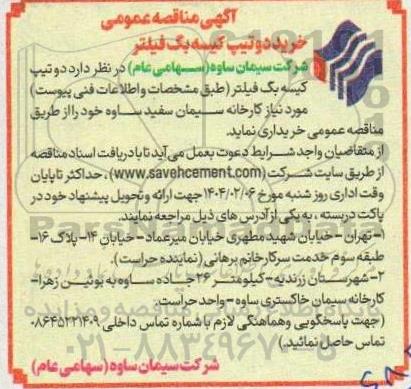 آگهی مناقصه عمومی
خرید دو تیپ کیسه بگ فیلتر
شرکت سیمان ساوه (سهامی عام) در نظر دارد دو تیپ
کیسه بگ فیلتر (طبق مشخصات و اطلاعات فنی پیوست)
مورد نیاز کارخانه سیمان سفید ساوه خود را از طریق
مناقصه عمومی خریداری نماید.
از متقاضیان واجد شرایط دعوت بعمل می آید تا با دریافت اسناد مناقصه
از طریق سایت شرکت (www.savehcement.com) ، حداکثر تا پایان
وقت اداری روز شنبه مورخ ۱۴۰۴/۰۲/۰۶ جهت ارائه و تحویل پیشنهاد خود در
پاکت دربسته ، به یکی از آدرس های ذیل مراجعه نمایند.
۱- تهران - خیابان شهید مطهری خیابان میرعماد - خیابان ۱۴- پلاک ۱۶-
طبقه سوم خدمت سرکار خانم برهانی (نماینده حراست).
۲- شهرستان زرندیه - کیلومتر ۲۶ جاده ساوه به بوئین زهرا-
کارخانه سیمان خاکستری ساوه - واحد حراست.
(جهت پاسخگویی و هماهنگی لازم با شماره تماس داخلی ۰۸۶۴۵۲۲۱۴۰۹
تماس حاصل نمائید.)
شرکت سیمان ساوه (سهامی عام)
۰۲۱-۸۸۳۴۹۶۷۰-۵